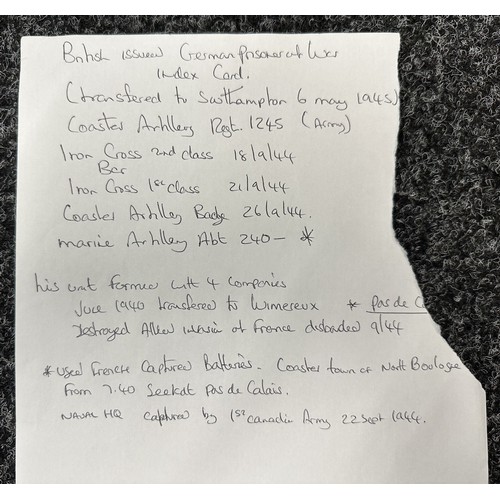 British issued German prisoner of War
Index Card.
(transferred to Southampton 6 may 1945)
Coaster Artillery Regt. 1245 (Army)
Iron Cross 2nd class 18/9/44
Bar
Iron Cross 1st class 21/9/44
Coaster Artilley Badge 26/9/44.
marine Artillery Abt 240 - *
his unit formed with 4 companies
June 1940 transfered to Wimereux * Pas de C
Destroyed Allied invasion of France disbanded 9/44
* used French Captured Batteries. Coaster town of North Boulogne
From 7.40 Seekdt Pas de Calais.
NAVAL HQ captured by 1st Canadian Army 22 Sept 1944.